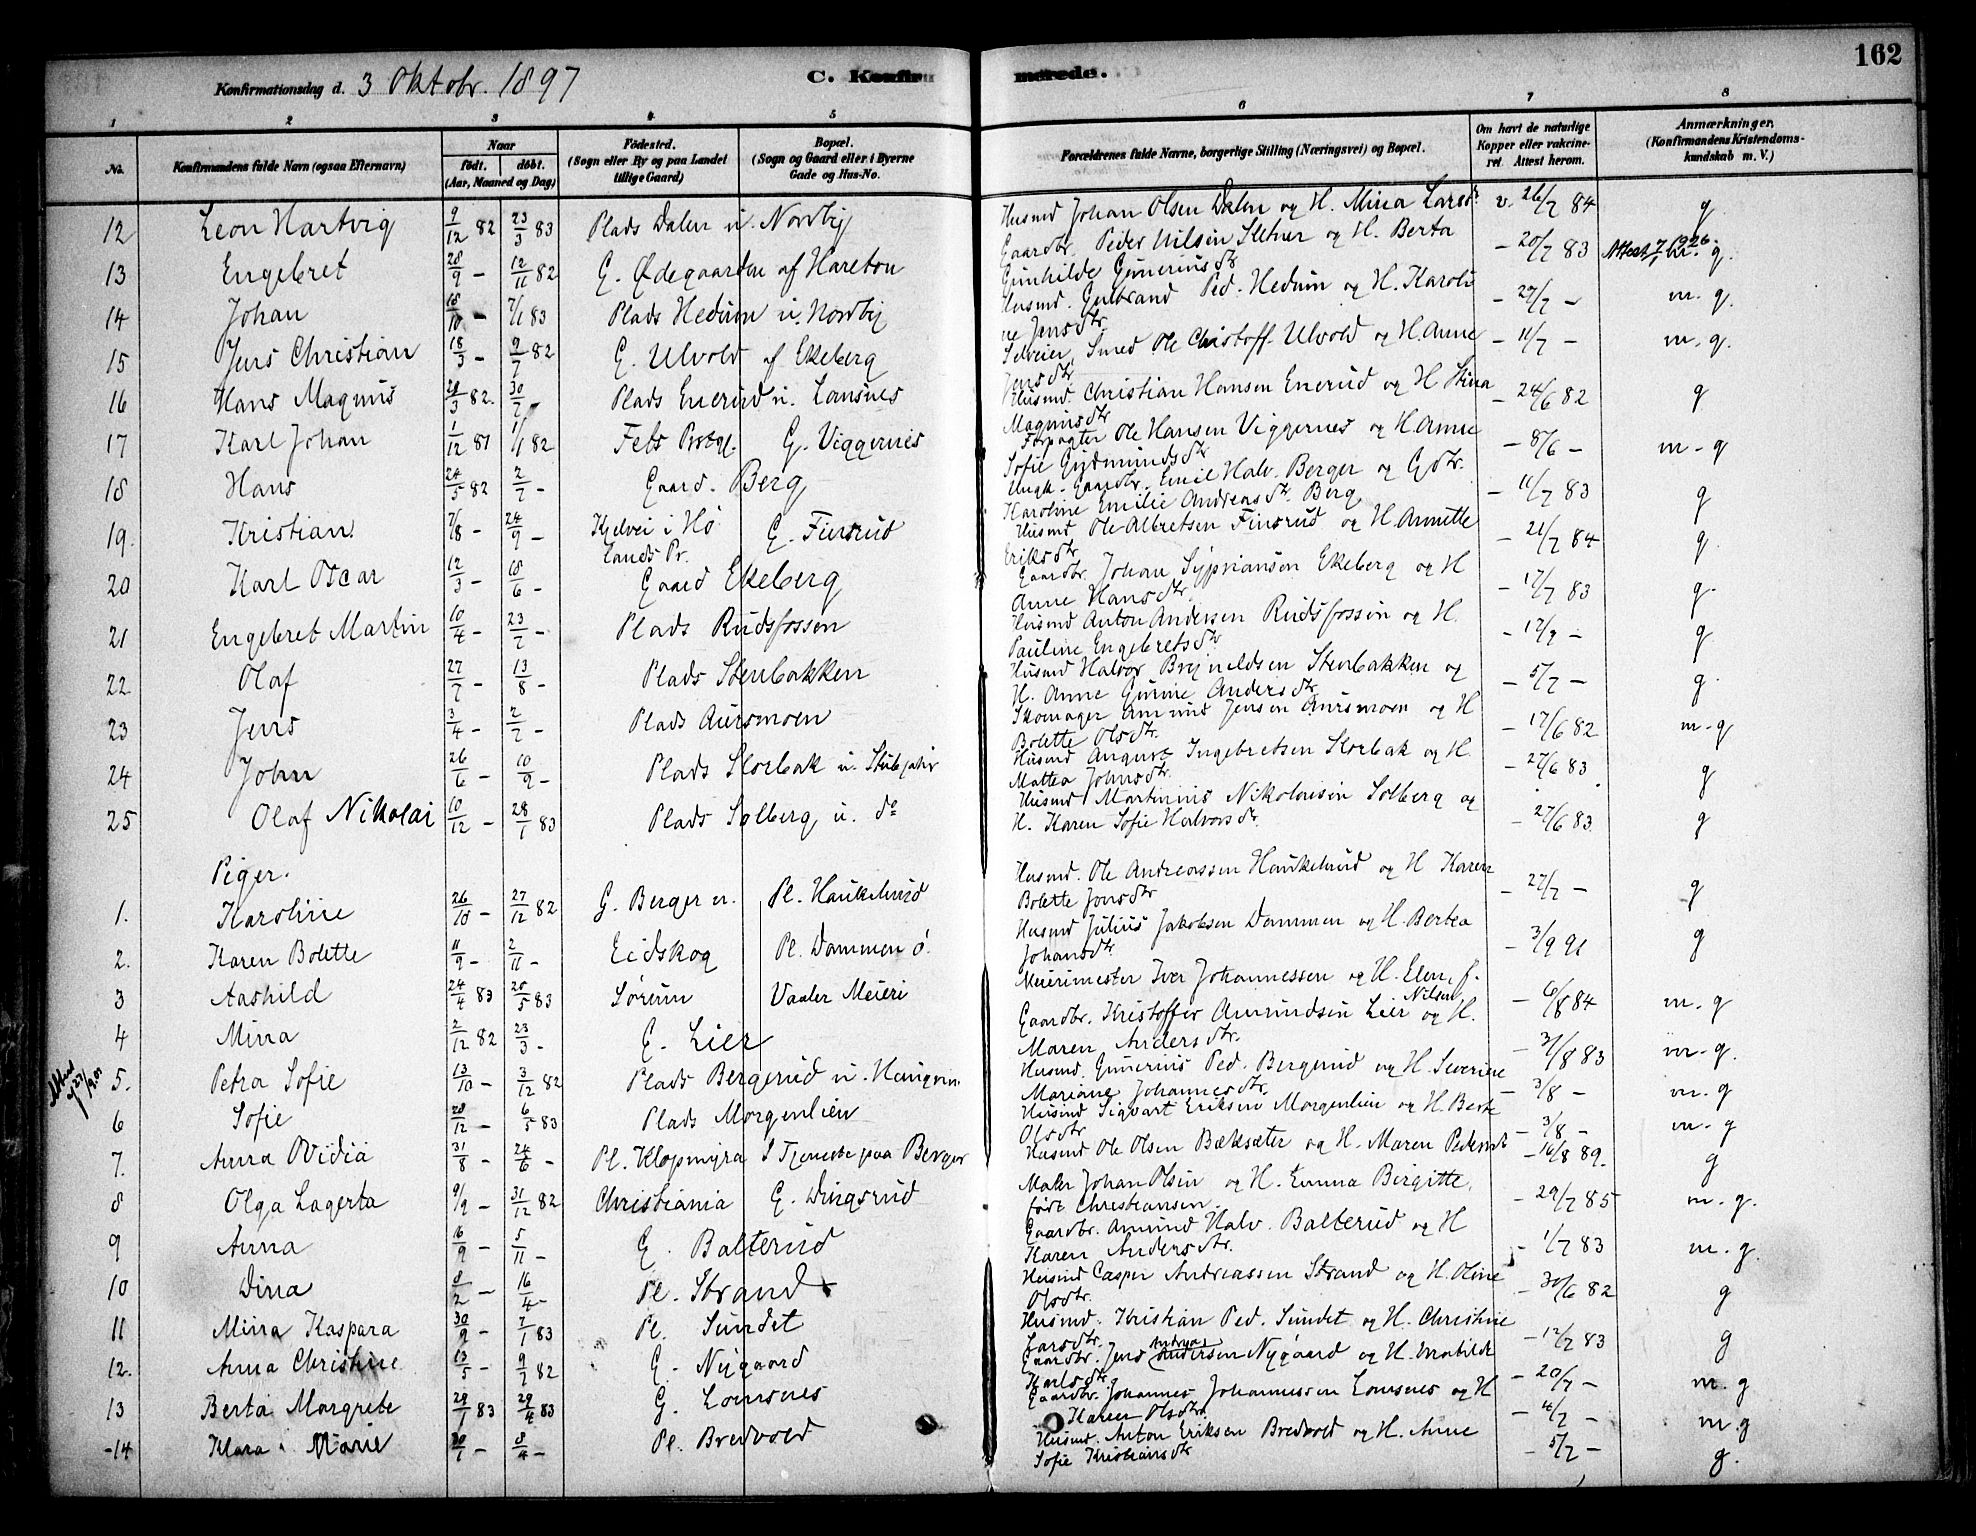 162
Konfirmationsdag d. 3 Oktobr. 1897
C. Konfirmerede.
1 2 3 4 5 6 7 8
No. Konfirmandens fulde Navn (ogsaa Efternavn) Naar født. døbt. (Aar, Maaned og Dag) Fødested. (Sogn eller By og paa Landet tillige Gaard) Bopæl. (Sogn og Gaard eller i Byerne Gade og Hus-No. Forældrenes fulde Navne, borgerlige Stilling (Næringsvei) og Bopæl. Om havt de naturlige Kopper eller vakcineret. Attest herom. Anmærkninger, (Konfirmandens Kristendomskundskab m. V.)
12 Leon Hartvig 9/12 82 23/3 83 Plads Dalen u. Nordby Husmd Johan Olsen Dalen og H. Mina Larsdr v. 26/7 84 g
13 Engebret 28/9 - 12/11 82 G. Ødegaarden af Hareton Gaardbr. Peder Nilsen Sletner og H. Berta Gunhilde Guneriusdtr - 20/7 83 Attest 7/1 1926 g.
14 Johan 18/10 - 7/1 83 Plads Hedum u. Nordby Husmd. Gulbrand Ped. Hedum og H. Karoline Jensdtr. - 27/7 - m. g.
15 Jens Christian 18/3 - 9/7 82 G. Ulvold af Ekeberg Selveier, Smed Ole Christoff. Ulvold og H Anne Jensdtr. - 11/7 - m. g.
16 Hans Magnus 28/3 82. 30/7 - Plads Enerud u. Lomsnes Husmd. Christian Hansen Enerud og H Stina Magnusdtr - 24/6 82 g
17 Karl Johan 1/12 81 1/1 82 Fets Prstgj. G. Viggernes Forpagter Ole Hansen Viggernes og H Anne Sofie Gudmundsdtr - 8/6 - m - g
18 Hans 24/5 82 2/7 - Gaard. Berg Ungk. Gaardbr. Emil Halv. Berger og Gdtr. Karoline Emilie Andreasdtr. Berg - 11/7 83 g
19. Kristian 7/8 - 24/9 - Kjelvei i Hølands Pr. G. Finsrud Husmd Ole Albretsen Finsrud og H Annette Eriksdtr - 21/7 84 g.
20 Karl Oscar 12/3 - 18/6 - Gaard Ekeberg Gaardbr. Johan Syprians​en Ekeberg og H Anne Hansdtr. - 17/7 83 g.
21 Engebret Martin 10/4 - 23/7 - Plads Rudsfossen Husmd Anton Andersen Rudsfossen og H. Pauline Engebretsdtr - 12/7 - g
22 Olaf 27/7 - 13/8 - Plads Stenbakken Husmd Halvor Brynildsen Stenbakken og H. Anne Gurine Andersdtr - 5/7 - g.
23 Jens 3/4 - 2/7 - Plads Aursmoen Skomager Amund Jensen Aursmoen og H Bolette Olsdtr. - 17/6 82 m - g
24 John 26/6 - 10/9 - Plads Storbak u. Husmd August Ingebretsen Storbak og H. Mattea Johnsdtr. - 27/6 83 g
25 Olaf Nikolai 10/12 - 28/1 83 Plads Solberg u. do Husmd Martinius Nikolaisen Solberg og H. Karen Sofie Halvorsdtr. - 27/6 83 g
Piger.
1. Karoline 26/10 - 27/12 82 G. Berger u. Pl. Haukelurud Husmd. Ole Andreassen Haukelurud og H Karen Bolette Jonsdtr - 27/7 - g
2. Karen Bolette 11/9 - 2/11 - Eidskog Pl. Dammen ø. Husmd Julius Jakobsen Dammen og H. Bertea Johansdtr - 3/9 91 g
3 Aashild 24/4 83 20/5 83 Sørum Vaaler Meieri Meierimester Iver Johannessen og H. Elen, f. Nilsen - 6/8 84 m. g
4 Mina 2/12 82 23/3 - G. Lier Gaardbr. Kristoffer Amundsen Lier og H. Maren Andersdtr. - 31/8 83 m - g.
Attest 27/9 01
5. Petra Sofie 13/10 - 3/12 82 Plads Bergerud u. Husmd. Gunerius Ped. Bergerud og H. Severine Mariane Johannesdtr. - 3/8 - m. g
6 Sofie 28/12 - 6/5 83 Plads Morgenlien Husmd Sigvart Eriksen Morgenlien og H. Berte Olsdtr - 3/8 - m. g
7. Anna Ovidia 31/8 - 24/6 - Pl. Klopmyra I Tjeneste paa Berger Husmd Ole Olsen Bæksæter og H. Maren Pedersdt - 16/8 89. g
8 Olga Lagerta 9/9 - 31/12 82 Christiania G. Dingsrud Maler Johan Olsen og H. Emma Birgitte, født Christiansen. - 29/7 85 m. g.
9 Anna 16/9 - 5/11 - G. Balterud Gaardbr. Amund Halv. Balterud og H Karen Andersdtr. - 1/7 83 m. g.
10 Dina 8/2 - 16/4 - Pl. Strand Husmd Casper Andreassen Strand og H. Oline Olsdtr. - 30/6 82 g
11 Mina Kaspara 30/9 - 7/1 83 Pl. Sundet Husmd. Kristian Ped. Sundet og H. Christine Larsdtr. - 12/7 83 g
12. Anna Christine 13/5 - 9/7 82 G. Nygaard Gaardbr. Jens Andersen Nygaard og H. Matilde Karlsdtr. - 20/7 - m. g
13 Berta Margrete 28/1 83 29/4 83 G. Lomsnes Gaardbr. Johannes Johannessen Lomsnes og H Karen Olsdtr. - 4/7 - m. g
-14 Klara Marie 20/1 - 8/4 - Pl. Bredvold Husmd. Anton Eriksen Bredvold og H. Anne Sofie Kristiansdtr - 5/7 - g.